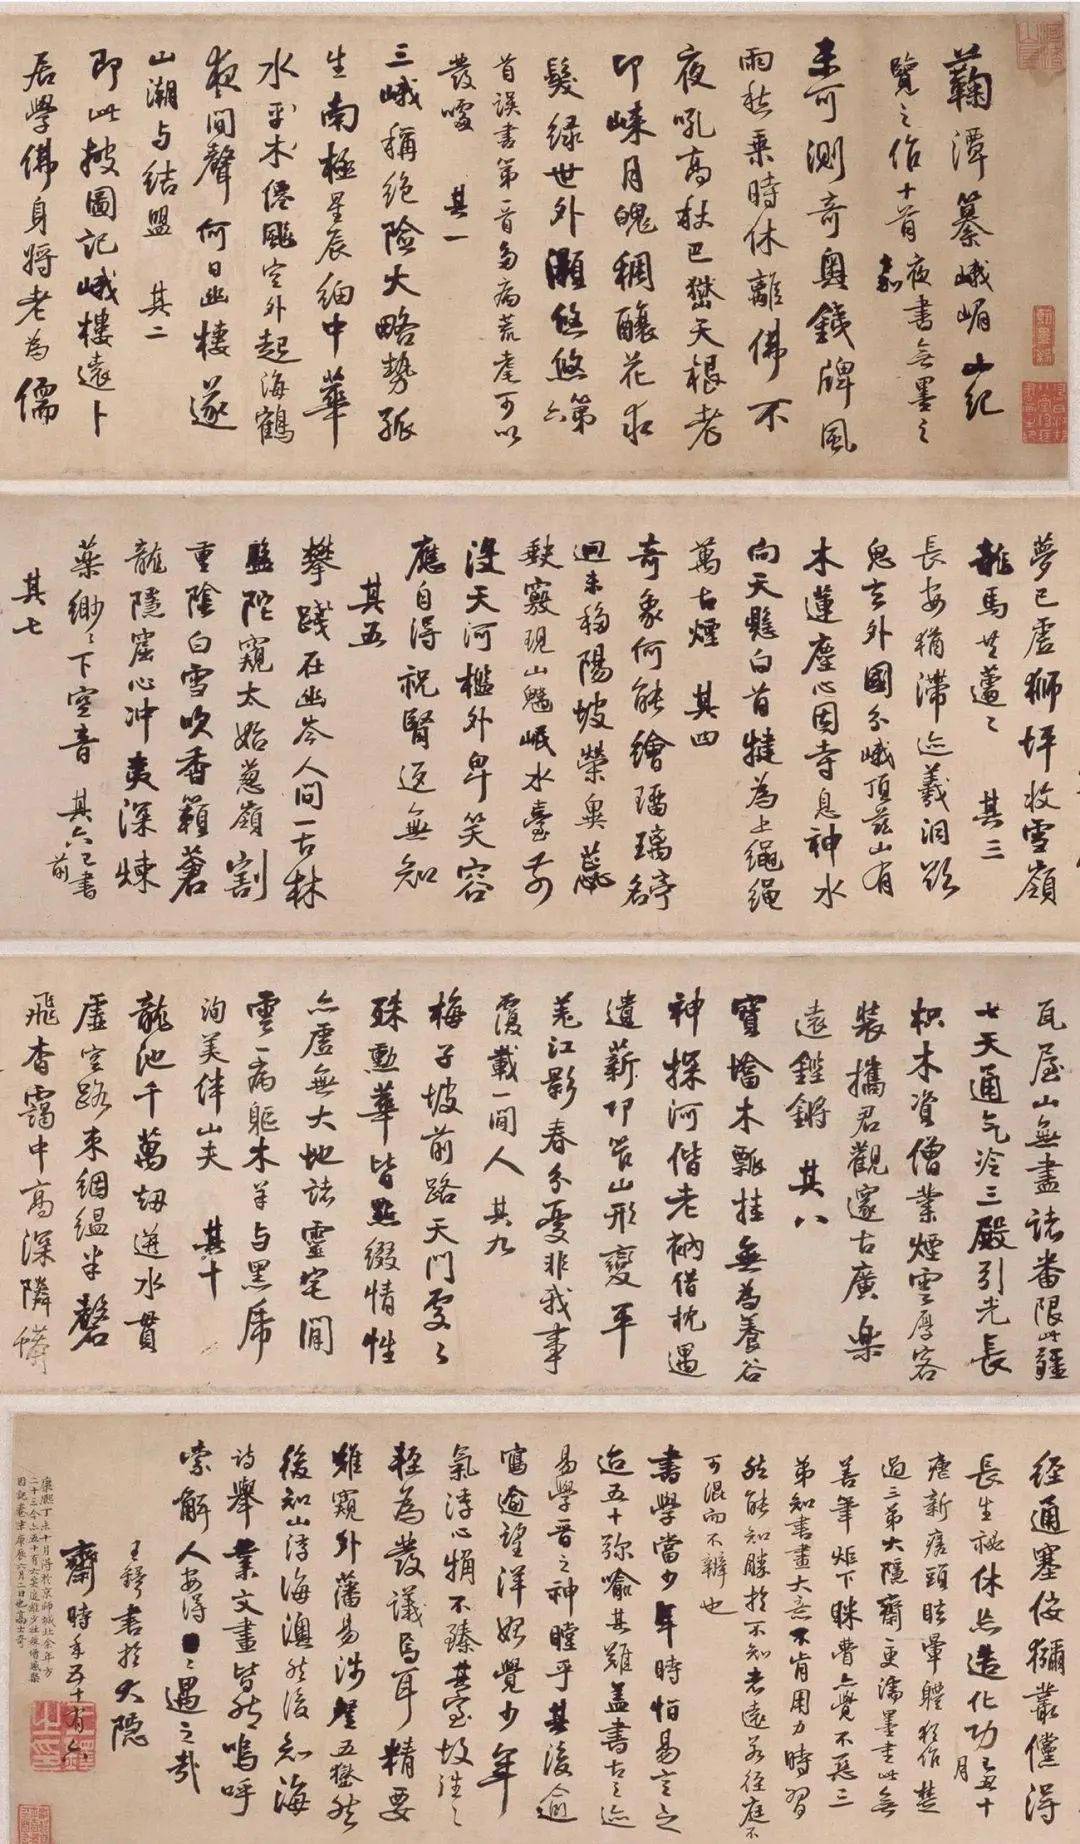 蘜潭纂峨嵋山紀
覽之作十首夜書無墨之
嘉
未可測奇奧錢牌風
雨愁乘時休離佛不
夜吼高秋巴嶅天根老
卬崍月魄稠釀花求
髮綠世外灝悠悠第六
首誤書第一首多病荒耄可以
發噱 其一
三峨稱絕險大略勢孤
生南極星辰細中華
水乎木僊颷空外起海鶴
夜間聲何日幽棲遂
山潮与結盟 其二
即此披圖記峨樓遠卜
居學佛身將老為儒
夢已虛獅坪收雪嶺
龍馬艹蘆〻 其三
長安猶滯迹羲洞跂
鬼玄外國分峨頂茲山有
木蓮塵心因寺息神水
向天懸白首揵為上繩繩
萬古煙 其四
奇象何能繪璠璃亭名
迴未移陽坡榮奧蕊
缺竅現山魈岷水臺前
沒天河檻外卑笑容
應自得祝腎返無知
其五
攀踐在幽岑人間一古林
盬陀窺太始蔥嶺割
重陰白雪吹香籟蒼
龍隱窟心冲爽深煉
藥緲〻下空音 其六已書前
其七
瓦屋山無盡諸番限此疆
七天通气冷三殿引光長
枳木資僧業煙雲厚客
裝攜君觀邃古廣樂
遠鏗鏘 其八
寶墖木瓢挂無為養谷
神探河偕老衲借枕遇
遺薪卭笮山形變平
羌江影春分憂非我事
覆載一閒人 其九
梅子坡前路天門處〻
殊勳華皆點綴情性
亦虛無大地諸靈宅閒
雲一病軀木羊与黑席
洵美体山夫 其十
龍池千萬刼迸水貫
虛空路束絪緼半磬
飛杳靄中高深隣蟒
經通塞侫獼叢儻得
長生祕休兵造化功己丑十月
瘧新瘥頭眩暈體猶作楚
過三弟大隱齋更濡墨書此無
善筆炬下眯瞢亦覺不惡三
弟知書畫大意不肯用力時習
然能知勝於不知者遠矣徑庭不
可混而不辨也
書學當少年時怕易言之
迨五十弥喻其難蓋書古之迹
易學晉之神瞠乎其後逾
寫逾望洋始覺少年
氣浮心悁不臻其室故往〻
輕為發議焉耳精要
雖窺外藩易涉堂五嶽然
後知山浮海澳然後知海
詩舉業文畫皆然嗚呼
索解人安得〻遇之哉
王鐸書於大隱
齋時年五十有八
康熙丁未十月得於京師城北余年方
二十三今六五十有六矣追維少壯疾憎感槩
因記卷末庚辰六月二日也高士奇